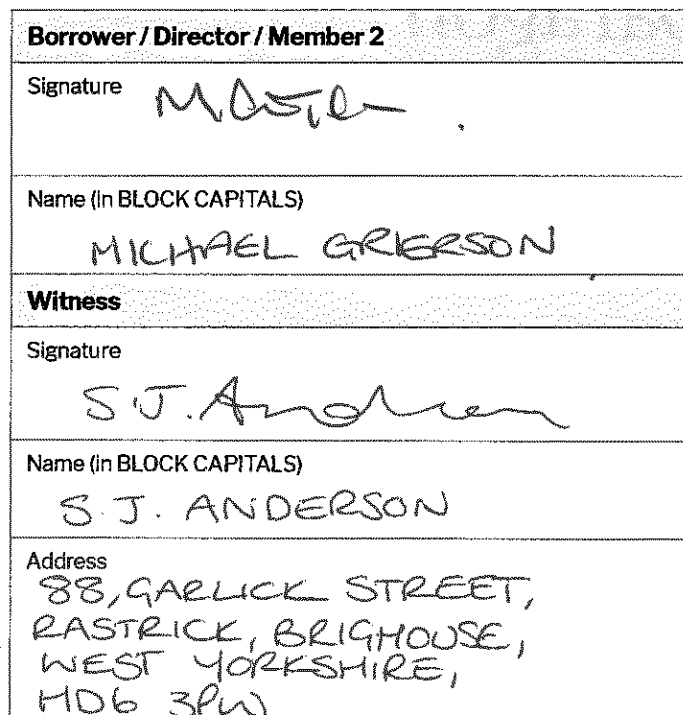 Borrower / Director / Member 2
Signature
Name (in BLOCK CAPITALS)
MICHAEL GRIERSON
Witness
Signature
S.J. Anderson
Name (in BLOCK CAPITALS)
S.J. ANDERSON
Address
88, GARLICK STREET,
RASTRICK, BRIGHOUSE,
WEST YORKSHIRE,
HD6 3PW